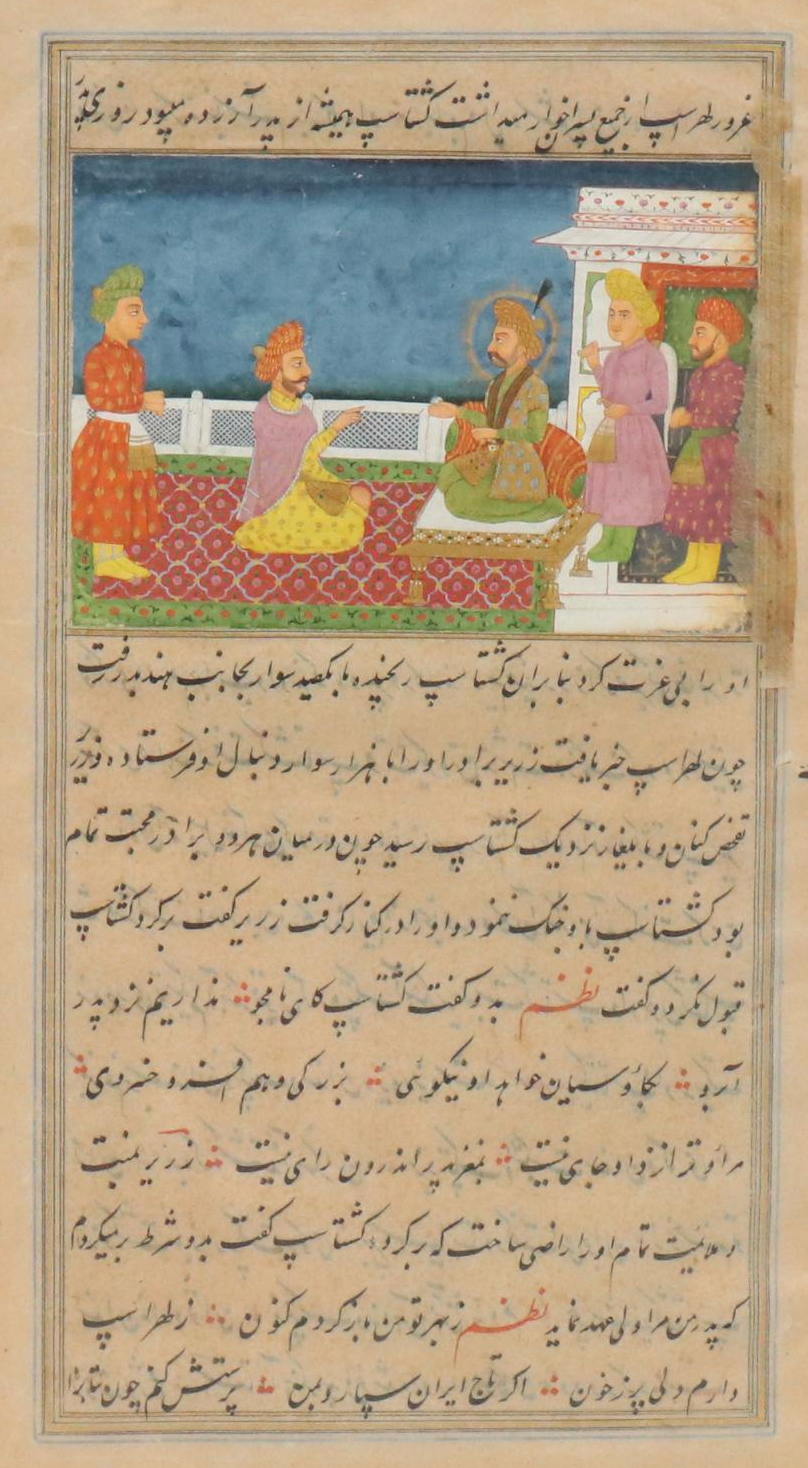 غرور لهراسپ از جمیع پسر اخوار میداشت کشتاسپ همیشه از پدر آزرده میبود روزی پدر
او را بی عزت کرد بنابران کشتاسپ رنجیده با یکصد سوار بجانب هند بدر رفت
چون لهراسپ خبر یافت زریر برادر او را با هزار سوار دنبال او فرستاده وزریر
تفحص کنان و بایلغار نزدیک کشتاسپ رسید چون درمیان هر دو برادر محبت تمام
بود کشتاسپ با و جنک ننمود و او را در کنار کرفت زریر کفت برکرد کشتاسپ
قبول نکرد و کفت نظم بدو کفت کشتاسپ کای نامجو نداریم نزد پدر
آبرو بکاوسیان خواهد او نیکوئی بزرکی و هم افسر و خسروی
مرا و ترا نزد او جای نیست بمغز پدر اندرون رای نیست زریر بمنت
و ملائمت تمام او را راضی ساخت که برکرد کشتاسپ کفت بدو شرط برمیکردم
که پدر من مرا ولی عهد نماید نظم ز بهر تو من باز کردم کنون ز لهراسپ
دارم دلی پر ز خون اکر تاج ایران سپارد بمن پرستش کنم چون بتانرا